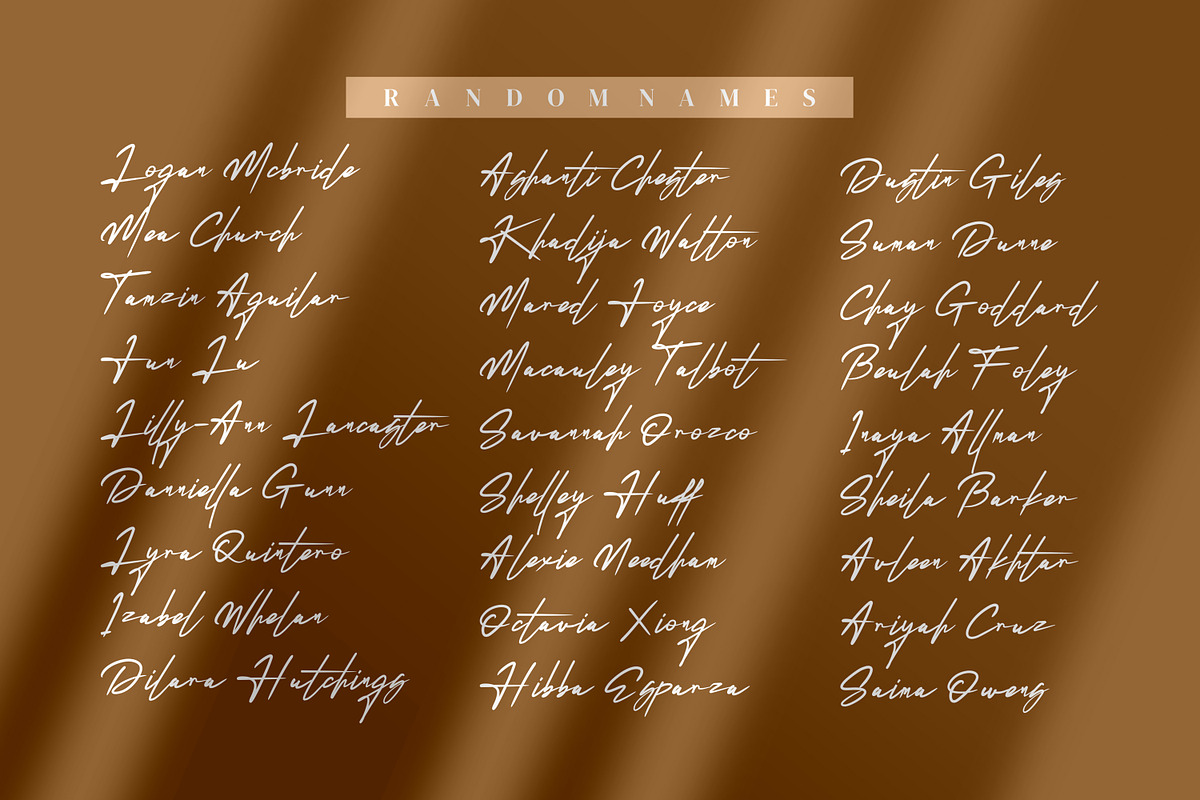 RANDOM NAMES
Logan Mcbride
Mea Church
Tamzin Aguilar
Jun Lu
Lilly-Ann Lancaster
Danniella Gunn
Lyra Quintero
Izabel Whelan
Dilara Hutchings
Ashanti Chester
Khadija Walton
Mared Joyce
Macauley Talbot
Savannah Orozco
Shelley Huff
Alexie Needham
Octavia Xiong
Hibba Esparza
Dustin Giles
Suman Dunne
Chay Goddard
Beulah Foley
Inaya Allman
Sheila Barker
Avleen Akhtar
Ariyah Cruz
Saima Owens